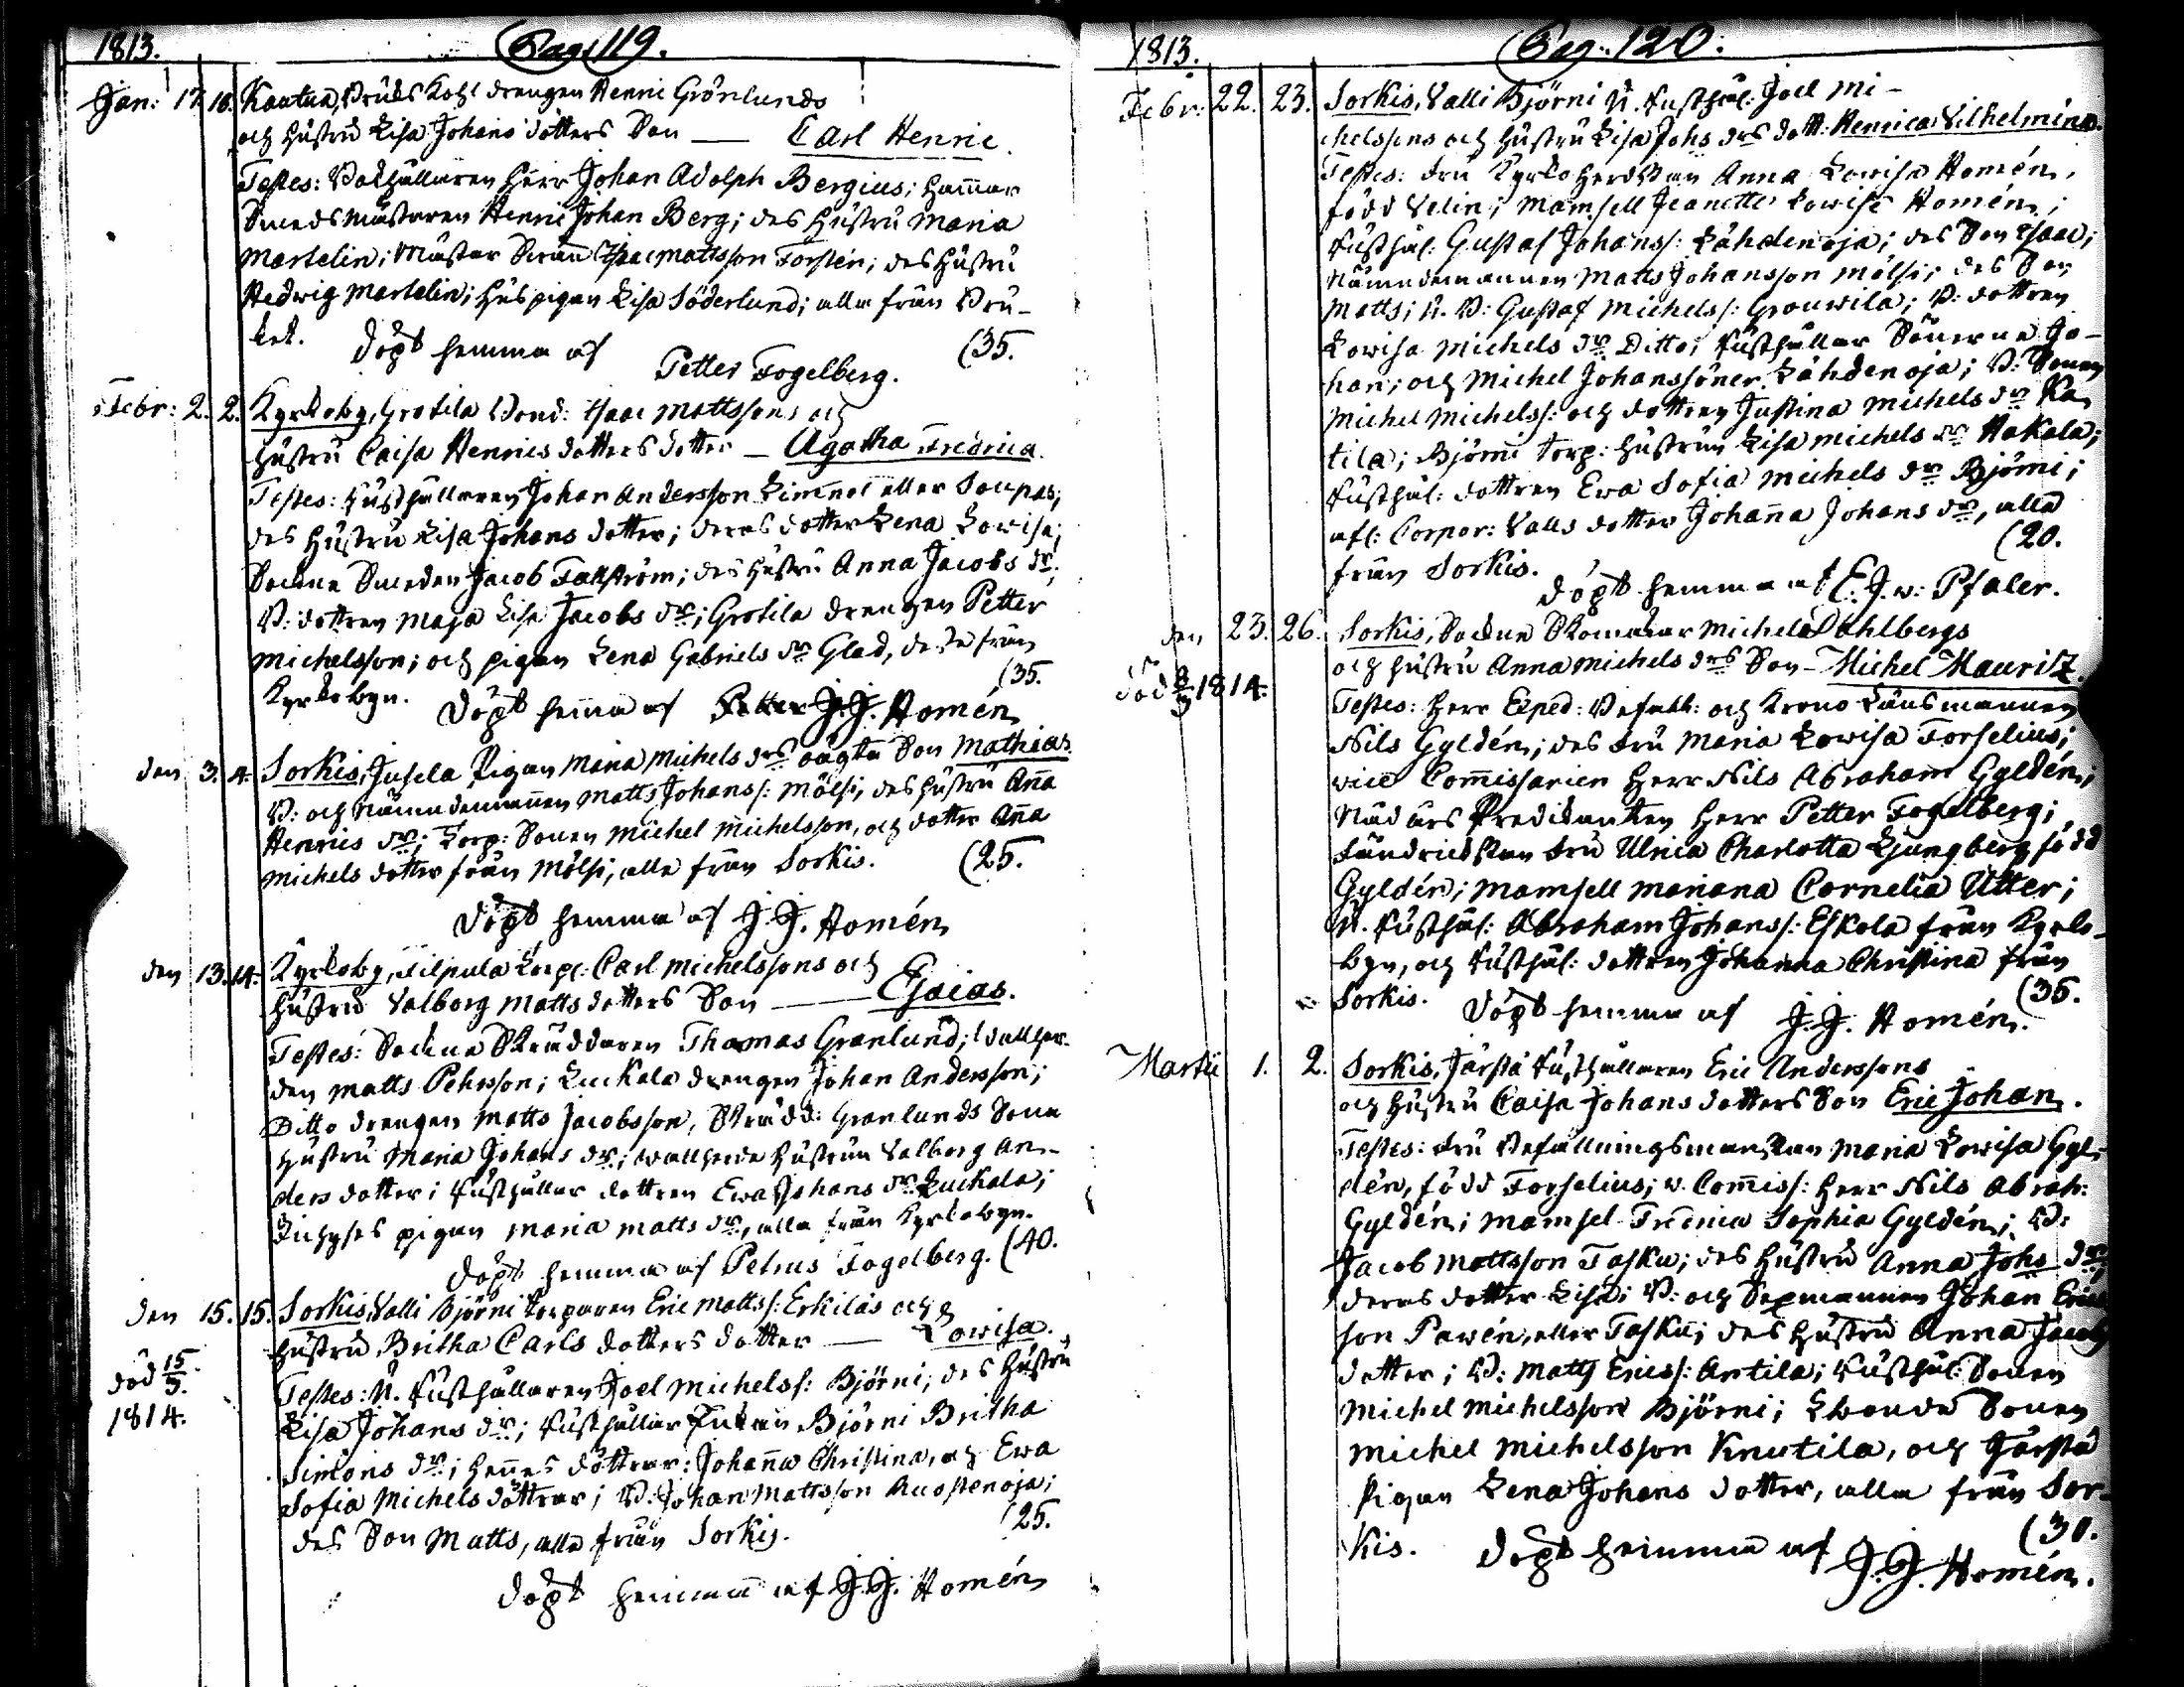 1813. Pag: 119.
Jan: 17. 18. Kautua, Bruks Kohl drengen Henric Grönlunds
och hustru Lisa Johans dotters Son — Carl Henric.
Testes: Bokhållaren Herr Johan Adolph Bergius; Hammar
Smeds mästaren Henric Johan Berg; des hustru Maria
Martelin; Mäster Sven Isaac Mattsson Forstén; des hustru
Hedwig Martelin; huspigan Lisa Söderlund; alla från Bru-
ket. Döpt hemma af (35.
Petter Fogelberg.
Febr: 2. 2. Kyrkoby, Grotila Bond: Isaac Mattssons och
hustru Caisa Henrics dotters dotter — Agatha Fredrica.
Testes: Husthållaren Johan Andersson Simmol eller Soupas;
des hustru Lisa Johans dotter; deras dotter Lena Lowisa;
Sockne Smeden Jacob Fallström; des hustru Anna Jacobs dr;
B: dottren Maja Lisa Jacobs dr; Grotila drengen Petter
Michelsson; och pigan Lena Gabriels dr Glad, desse från
(35.
Kyrkobyn. Döpt hemma af J.J. Homén
den 3. 4. Sorkis, Jusela Pigan Maria Michels drs oägta Son Mathias
B: och Nämndemannen Matts Johanss: Mölsi, des hustru Anna
Henrics dr; Torp: Sonen Michel Michelsson, och dotter Anna
Michels dotter från Mölsi, alla från Sorkis. (25.
Döpt hemma af J.J. Homén
den 13. 14. Kyrkoby, Filpula Torp: Carl Michelssons och
hustru Valborg Matts dotters Son — Esaias.
Testes: Sockne Skräddaren Thomas Granlund; Vallher-
den Matts Pehrsson; Luckala drengen Johan Andersson;
Ditto drengen Matts Jacobsson, Skrädd: Granlunds Sone
hustru Maria Johans dr; Wallherde hustrun Valborg An-
ders dotter; Rusthållar dottren Ewa Johans dr Luckala;
pigan Maria Matts dr, alla från Kyrkobyn.
Döpt hemma af Petrus Fogelberg. (40.
den 15. 15. Sorkis, Valli Björni torparen Eric Mattss: Erkilas och
hustru Britha Carls dotters dotter — Lowisa.
död 15/3. 1814.
Testes: N. Rusthållaren Joel Michelss: Björni; des hustru
Lisa Johans dr; Rusthållar Enkan Björni Britha
Simons dr; hennes döttrar: Johanna Christina, och Ewa
Sofia Michels döttrar; B: Johan Mattsson Ruostenoja;
des Son Matts, alla från Sorkis. (25.
Döpt hemma af J.J. Homén
1813. Pag: 120.
Febr: 22. 23. Sorkis, Valli Björni N. Rusthål: Joel Mi-
chelssons och hustru Lisa Johs drs dott: Henrica Vilhelmina.
Testes: Fru Kyrkoherdskan Anna Lowisa Homén,
född Velin; Mamsell Jeanette Lowise Homén;
Rusthål: Gustaf Johanss: Lähdenoja; des Son Isaac;
Nämndemannen Matts Johansson Mölsi; des Son
Matts; N. B: Gustaf Michelss: Grouwila; B: dottren
Lowisa Michels dr Ditto; Rusthållar Sönerne Jo-
han; och Michel Johanssöner Lähdenoja; B: Sonen
Michel Michelss: och dottren Justina Michels dr Ka-
tila; Björni torp: hustrun Lisa Michels dr Hakala;
Rusthål: dottren Ewa Sofia Michels dr Björni;
afl: Corpor: Valls dotter Johanna Johans dr, alla
(20.
från Sorkis. Döpt hemma af E.J.v: Pfaler.
den 23. 26. Sorkis, Sockne Skomakar Michel Dahlbergs
och hustru Anna Michels drs Son — Michel Mauritz.
död 1814.
Testes: Herr Exped: Befallt: och Krono Länsmannen
Nils Gyldén; des Fru Maria Lowisa Forselius;
vice Commissarien Herr Nils Abraham Gyldén;
Nådårs Predikanten Herr Petter Fogelberg;
Fändrickskan Fru Ulrica Charlotta Ljungberg född
Gyldén; Mamsell Mariana Cornelia Utter;
N. Rusthål: Abraham Johanss: Eskola från Kyrko-
byn, och Rusthål: dottren Johanna Christina från
Sorkis. Döpt hemma af J.J. Homén. (35.
Martii 1. 2. Sorkis, Järstä Rusthållaren Eric Anderssons
och hustru Caisa Johans dotters Son Eric Johan.
Testes: Fru Befallningsmanskan Maria Lowisa Gyl-
dén, född Forselius; v. Commiss: Herr Nils Abrah:
Gyldén; Mamsel Fredrica Sophia Gyldén; B:
Jacob Mattsson Tasku; des hustru Anna Johs dr;
deras dotter Lisa; B: och Sexmannen Johan Erics
son Pawén, eller Tasku; des hustru Anna Jacobs
dotter; B: Matts Ericss: Antila; Rusthål: Sonen
Michel Michelsson Björni; Sonen
Michel Michelsson Knutila, och Järstä
Pigan Lena Johans dotter, alla från Sor-
kis. Döpt hemma af (30.
J.J. Homén.